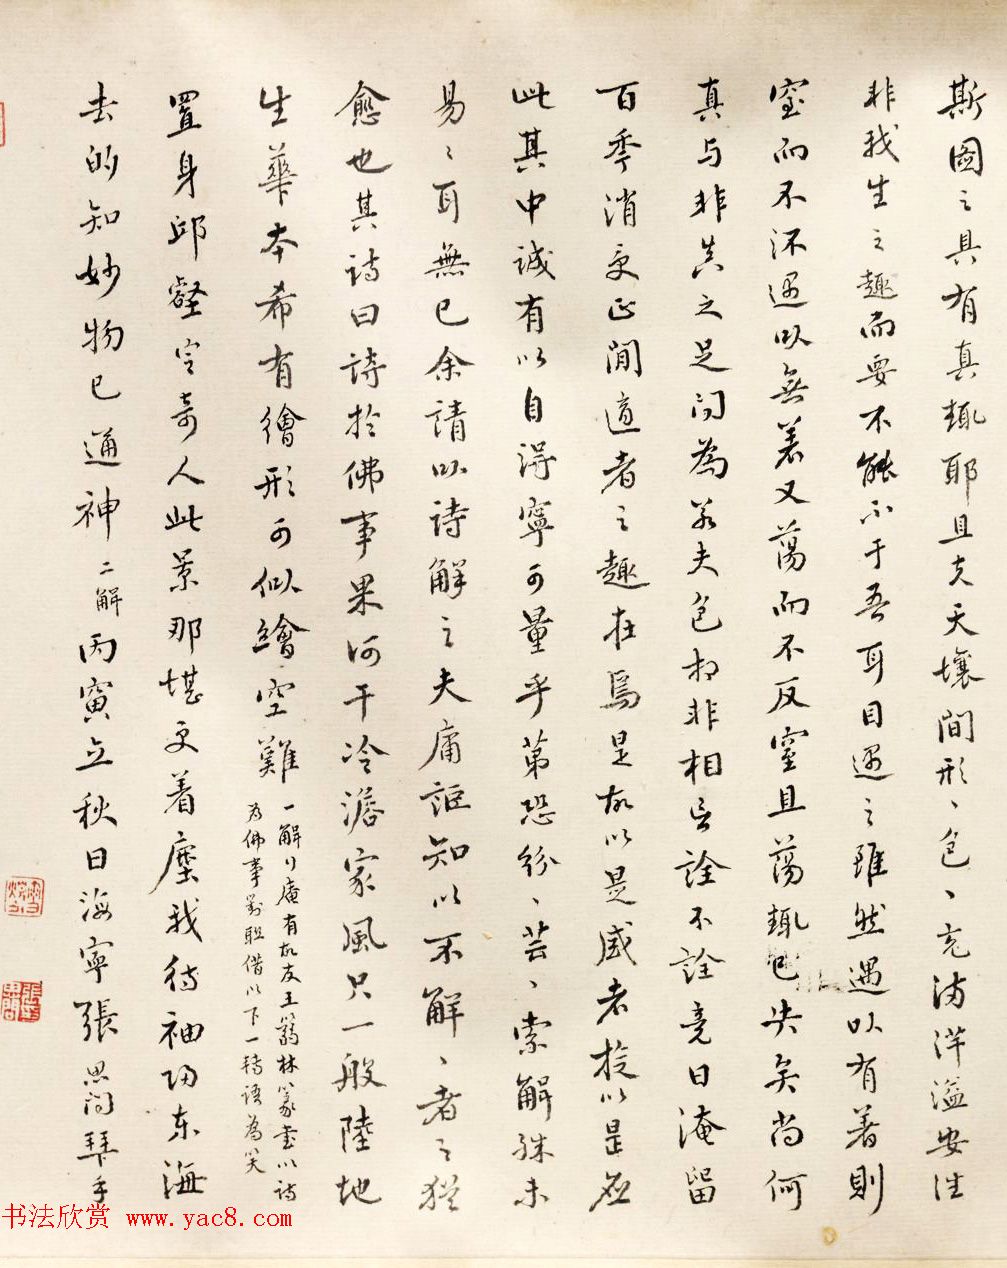 斯圖之具有真輒耶且夫天壤間形、色、充滿洋溢安往
非我生之趣而要不能不于吾耳目遇之雖然遇以有著則
窒而不泝遇以無著又蕩而不反窒且蕩輒已失矣尚何
真与非真之足问為若夫色相非相言詮不詮竟日淹留
百年消受正閒適者之趣在焉是故以是感者投以是應
此其中誠有以自得寧可量乎第恐紛、芸、索解殊未
易、耳無已余請以詩解之夫庸詎知以不解、者之猶
愈也其詩曰詩於佛事果河干冷澹家風只一般陸地
生華本希有繪形可似繪空難
一解行庵有故友王篛林篆書以詩
为佛事對聯借以下一轉语為笑
置身邱壑定奇人此景那堪更着塵我待袖歸东海
去的知妙物已通神二解丙寅立秋日海寧張思问拜手
书法欣赏 www.yac8.com